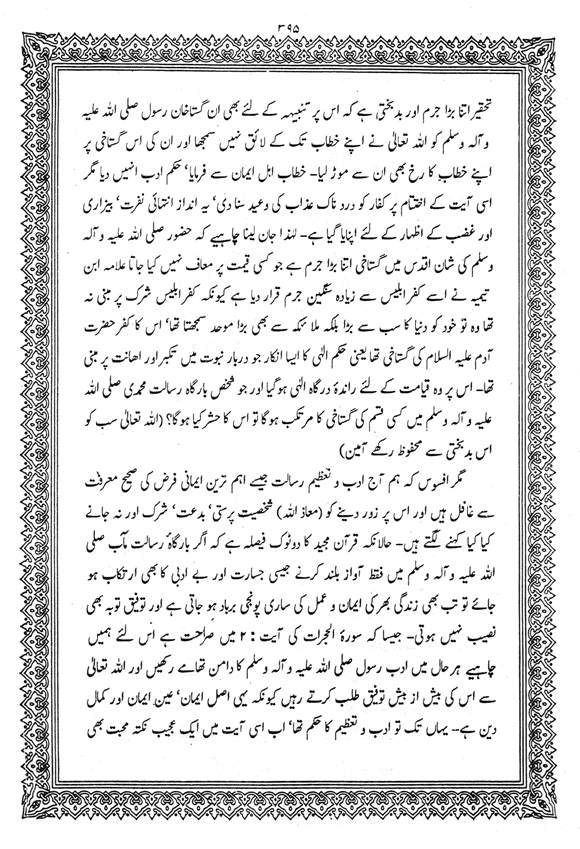 ۳۹۵
تحقیر اتنا بڑا جرم اور بدبختی ہے کہ اس پر تنبیہہ کے لئے بھی ان گستاخان رسول صلی اللہ علیہ
و آلہ وسلم کو اللہ تعالیٰ نے اپنے خطاب تک کے لائق نہیں سمجھا اور ان کی اس گستاخی پر
اپنے خطاب کا رخ بھی ان سے موڑ لیا۔ خطاب اہل ایمان سے فرمایا‘ حکم ادب انہیں دیا مگر
اسی آیت کے اختتام پر کفار کو درد ناک عذاب کی وعید سنا دی‘ یہ انداز انتہائی نفرت‘ بیزاری
اور غضب کے اظہار کے لئے اپنایا گیا ہے۔ لہٰذا جان لینا چاہیے کہ حضور صلی اللہ علیہ و آلہ
وسلم کی شان اقدس میں گستاخی اتنا بڑا جرم ہے جو کسی قیمت پر معاف نہیں کیا جاتا علامہ ابن
تیمیہ نے اسے کفر ابلیس سے زیادہ سنگین جرم قرار دیا ہے کیونکہ کفر ابلیس شرک پر مبنی نہ
تھا وہ تو خود کو دنیا کا سب سے بڑا بلکہ ملائکہ سے بھی بڑا موحد سمجھتا تھا‘ اس کا کفر حضرت
آدم علیہ السلام کی گستاخی تھا یعنی حکم الٰہی کا ایسا انکار جو دربار نبوت میں تکبر اور اھانت پر مبنی
تھا۔ اس پر وہ قیامت کے لئے راندۂ درگاہ الٰہی ہو گیا اور جو شخص بارگاہ رسالت محمدی صلی اللہ
علیہ و آلہ وسلم میں کسی قسم کی گستاخی کا مرتکب ہو گا تو اس کا حشر کیا ہو گا؟ (اللہ تعالیٰ سب کو
اس بدبختی سے محفوظ رکھے آمین)
مگر افسوس کہ ہم آج ادب و تعظیم رسالت جیسے اہم ترین ایمانی فرض کی صحیح معرفت
سے غافل ہیں اور اس پر زور دینے کو (معاذ اللہ) شخصیت پرستی‘ بدعت‘ شرک اور نہ جانے
کیا کیا کہنے لگتے ہیں۔ حالانکہ قرآن مجید کا دوٹوک فیصلہ ہے کہ اگر بارگاہ رسالت مآب صلی
اللہ علیہ و آلہ وسلم میں فقط آواز بلند کرنے جیسی جسارت اور بے ادبی کا بھی ارتکاب ہو
جائے تو تب بھی زندگی بھر کی ایمان و عمل کی ساری پونجی برباد ہو جاتی ہے اور توفیق توبہ بھی
نصیب نہیں ہوتی۔ جیسا کہ سورۃ الحجرات کی آیت : ۲ میں صراحت ہے اس لئے ہمیں
چاہیے ہر حال میں ادب رسول صلی اللہ علیہ و آلہ وسلم کا دامن تھامے رکھیں اور اللہ تعالیٰ
سے اس کی بیش از بیش توفیق طلب کرتے رہیں کیونکہ یہی اصل ایمان‘ عین ایمان اور کمال
دین ہے۔ یہاں تک تو ادب و تعظیم کا حکم تھا‘ اب اسی آیت میں ایک عجیب نکتہ محبت بھی